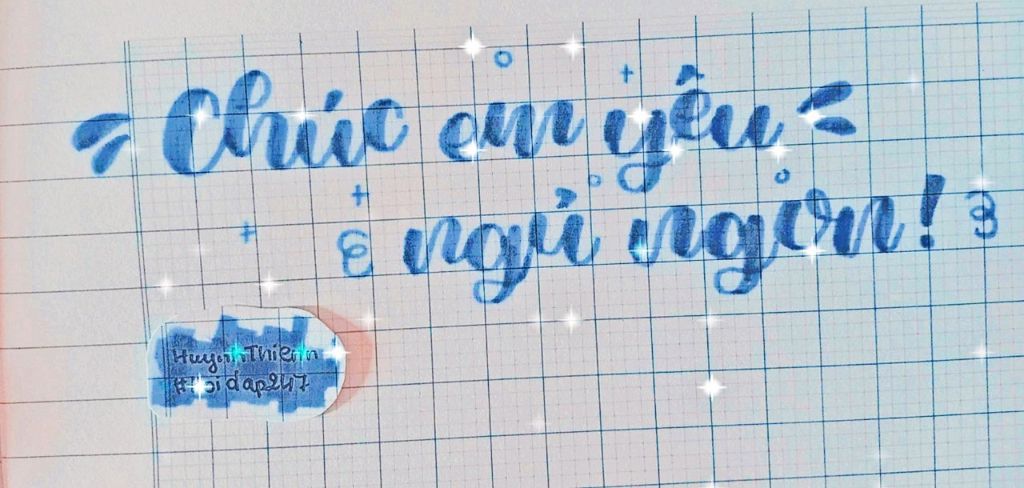 Chúc em yêu
ngủ ngơn!
HuynhThienn
#hoidap247